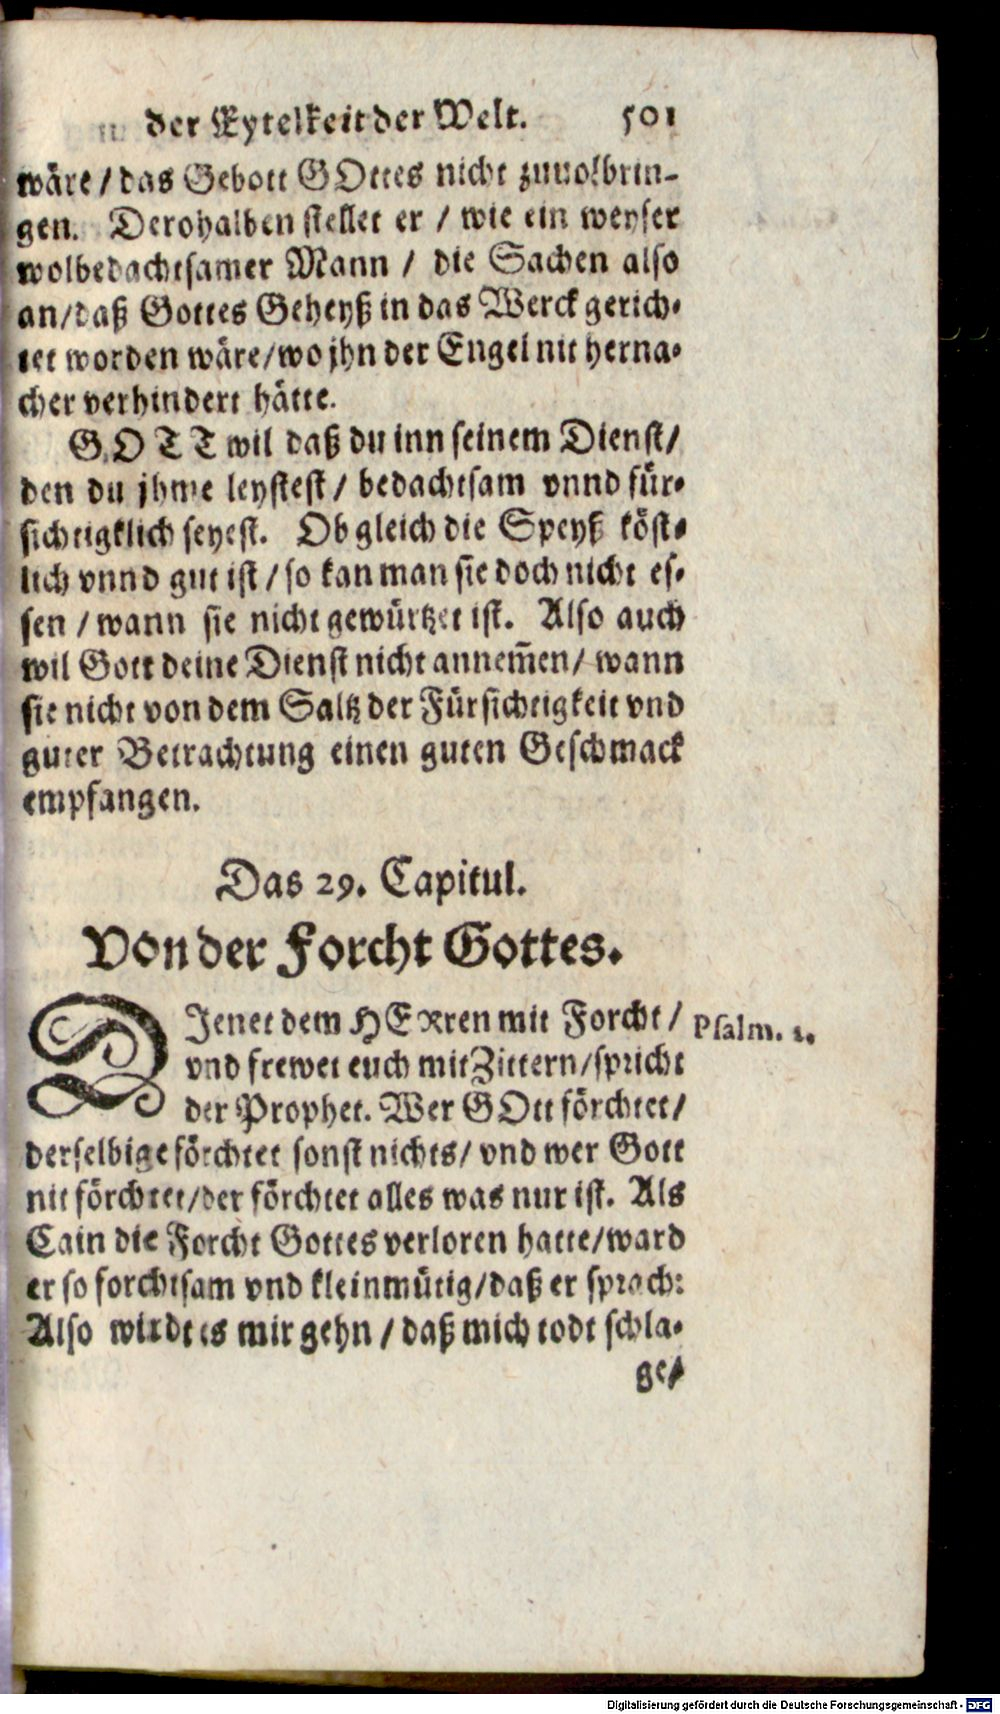 der Eytelkeit der Welt. 501
wäre / das Gebott GOttes nicht zuuolbrin-
gen. Derohalben stellet er / wie ein weyser
wolbedachtsamer Mann / die Sachen also
an/daß Gottes Geheyß in das Werck gerich-
tet worden wäre/wo jhn der Engel nit herna-
cher verhindert hätte.
GOTT wil daß du inn seinem Dienst/
den du jhme leystest / bedachtsam vnnd für-
sichtigklich seyest. Ob gleich die Speyß köst-
lich vnnd gut ist / so kan man sie doch nicht es-
sen / wann sie nicht gewürtzet ist. Also auch
wil Gott deine Dienst nicht annem̃en/ wann
sie nicht von dem Saltz der Fürsichtigkeit vnd
guter Betrachtung einen guten Geschmack
empfangen.
Das 29. Capitul.
Von der Forcht Gottes.
DJenet dem HERren mit Forcht / Psalm. 2.
vnd frewet euch mit Zittern/spricht
der Prophet. Wer GOtt förchtet/
derselbige förchtet sonst nichts/ vnd wer Gott
nit förchtet/der förchtet alles was nur ist. Als
Cain die Forcht Gottes verloren hatte/ward
er so forchtsam vnd kleinmütig/daß er sprach:
Also wirdt es mir gehn / daß mich todt schla-
ge/
Digitalisierung gefördert durch die Deutsche Forschungsgemeinschaft - DFG